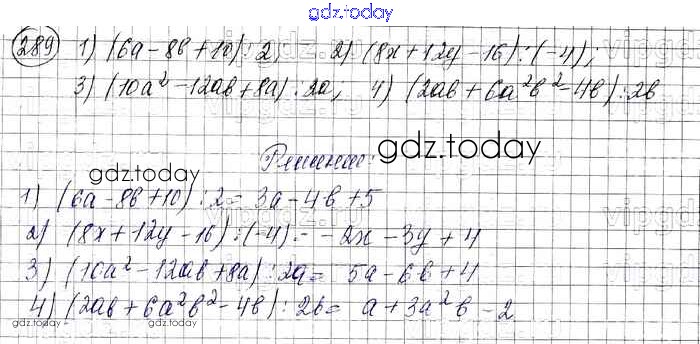 gdz.today
289 1) (6a-8b+10):2, 2) (8x+12y-16):(-4);
3) (10a²-12ab+8a):2a, 4) (2ab+6a²b²-4b):2b
gdz.today
Решение:
gdz.today
1) (6a-8b+10):2=3a-4b+5
2) (8x+12y-16):(-4)=-2x-3y+4
3) (10a²-12ab+8a):2a= 5a-6b+4
4) (2ab+6a²b²-4b):2b= a+3a²b-2
gdz.today